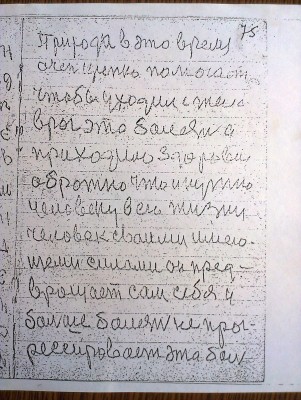 75
природа в это время
очен цепко помогает
чтобы уходил с тела
враг эта болезн а
приходило здоровия
обротно что и нужно
человеку в его жизни
человек своими имею-
щеми силами он пред-
вращает сам себя и
болше болезн не про-
рессировает эта бол